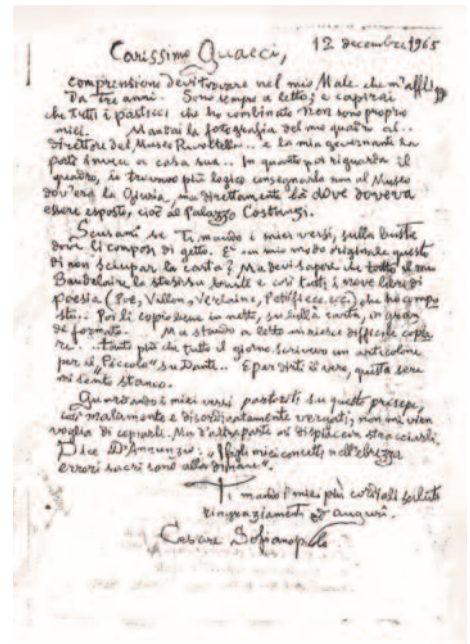 12 decembre 1965
Carissimo Quaeci,
comprensione devi trovare nel mio Male che m'affli
da tre anni. Sono sempre a letto; e capirai
che tutti i pasticci che ho combinato non sono proprio
miei. Mandai la fotografia del mio quadro al..
Direttore del Museo Revoltella.. e la mia governante la
portò invece a casa sua.. In quanto poi riguarda il
quadro, io trovavo più logico consegnarlo non al Museo
dov'era la Giuria, ma direttamente là dove doveva
essere esposto, cioè al Palazzo Costanzi.
Scusami se Ti mando i miei versi, sulla busta
dove li composi di getto. E' un mio modo originale questo
di non sciupar la carta? Ma devi sapere che tutto il mio
Baudelaire lo stesi su buste e così tutti i nove libri di
poesia (Poe, Villon, Verlaine, ecc), che ho compo
sti.. Poi li copio bene in netto, su bella carta, in gran
de formato. Ma stando a letto mi riesce difficile copia
re... tanto più che tutto il giorno scrivevo un articolone
per il "Piccolo" su Dante.. E per dirti il vero, questa sera
mi sento stanco.
Guardando i miei versi partoriti su questo presepe,
così malamente e disordinatamente vergati, non mi vien
voglia di copiarli. Ma d'altra parte mi dispiace stracciarli.
Dice D'Annunzio: "I figli miei concetti nell'ebrezza
errori sacri sono".
Ti mando i miei più cordiali saluti
ringraziamenti ed auguri.
Cesare Sofianopulo